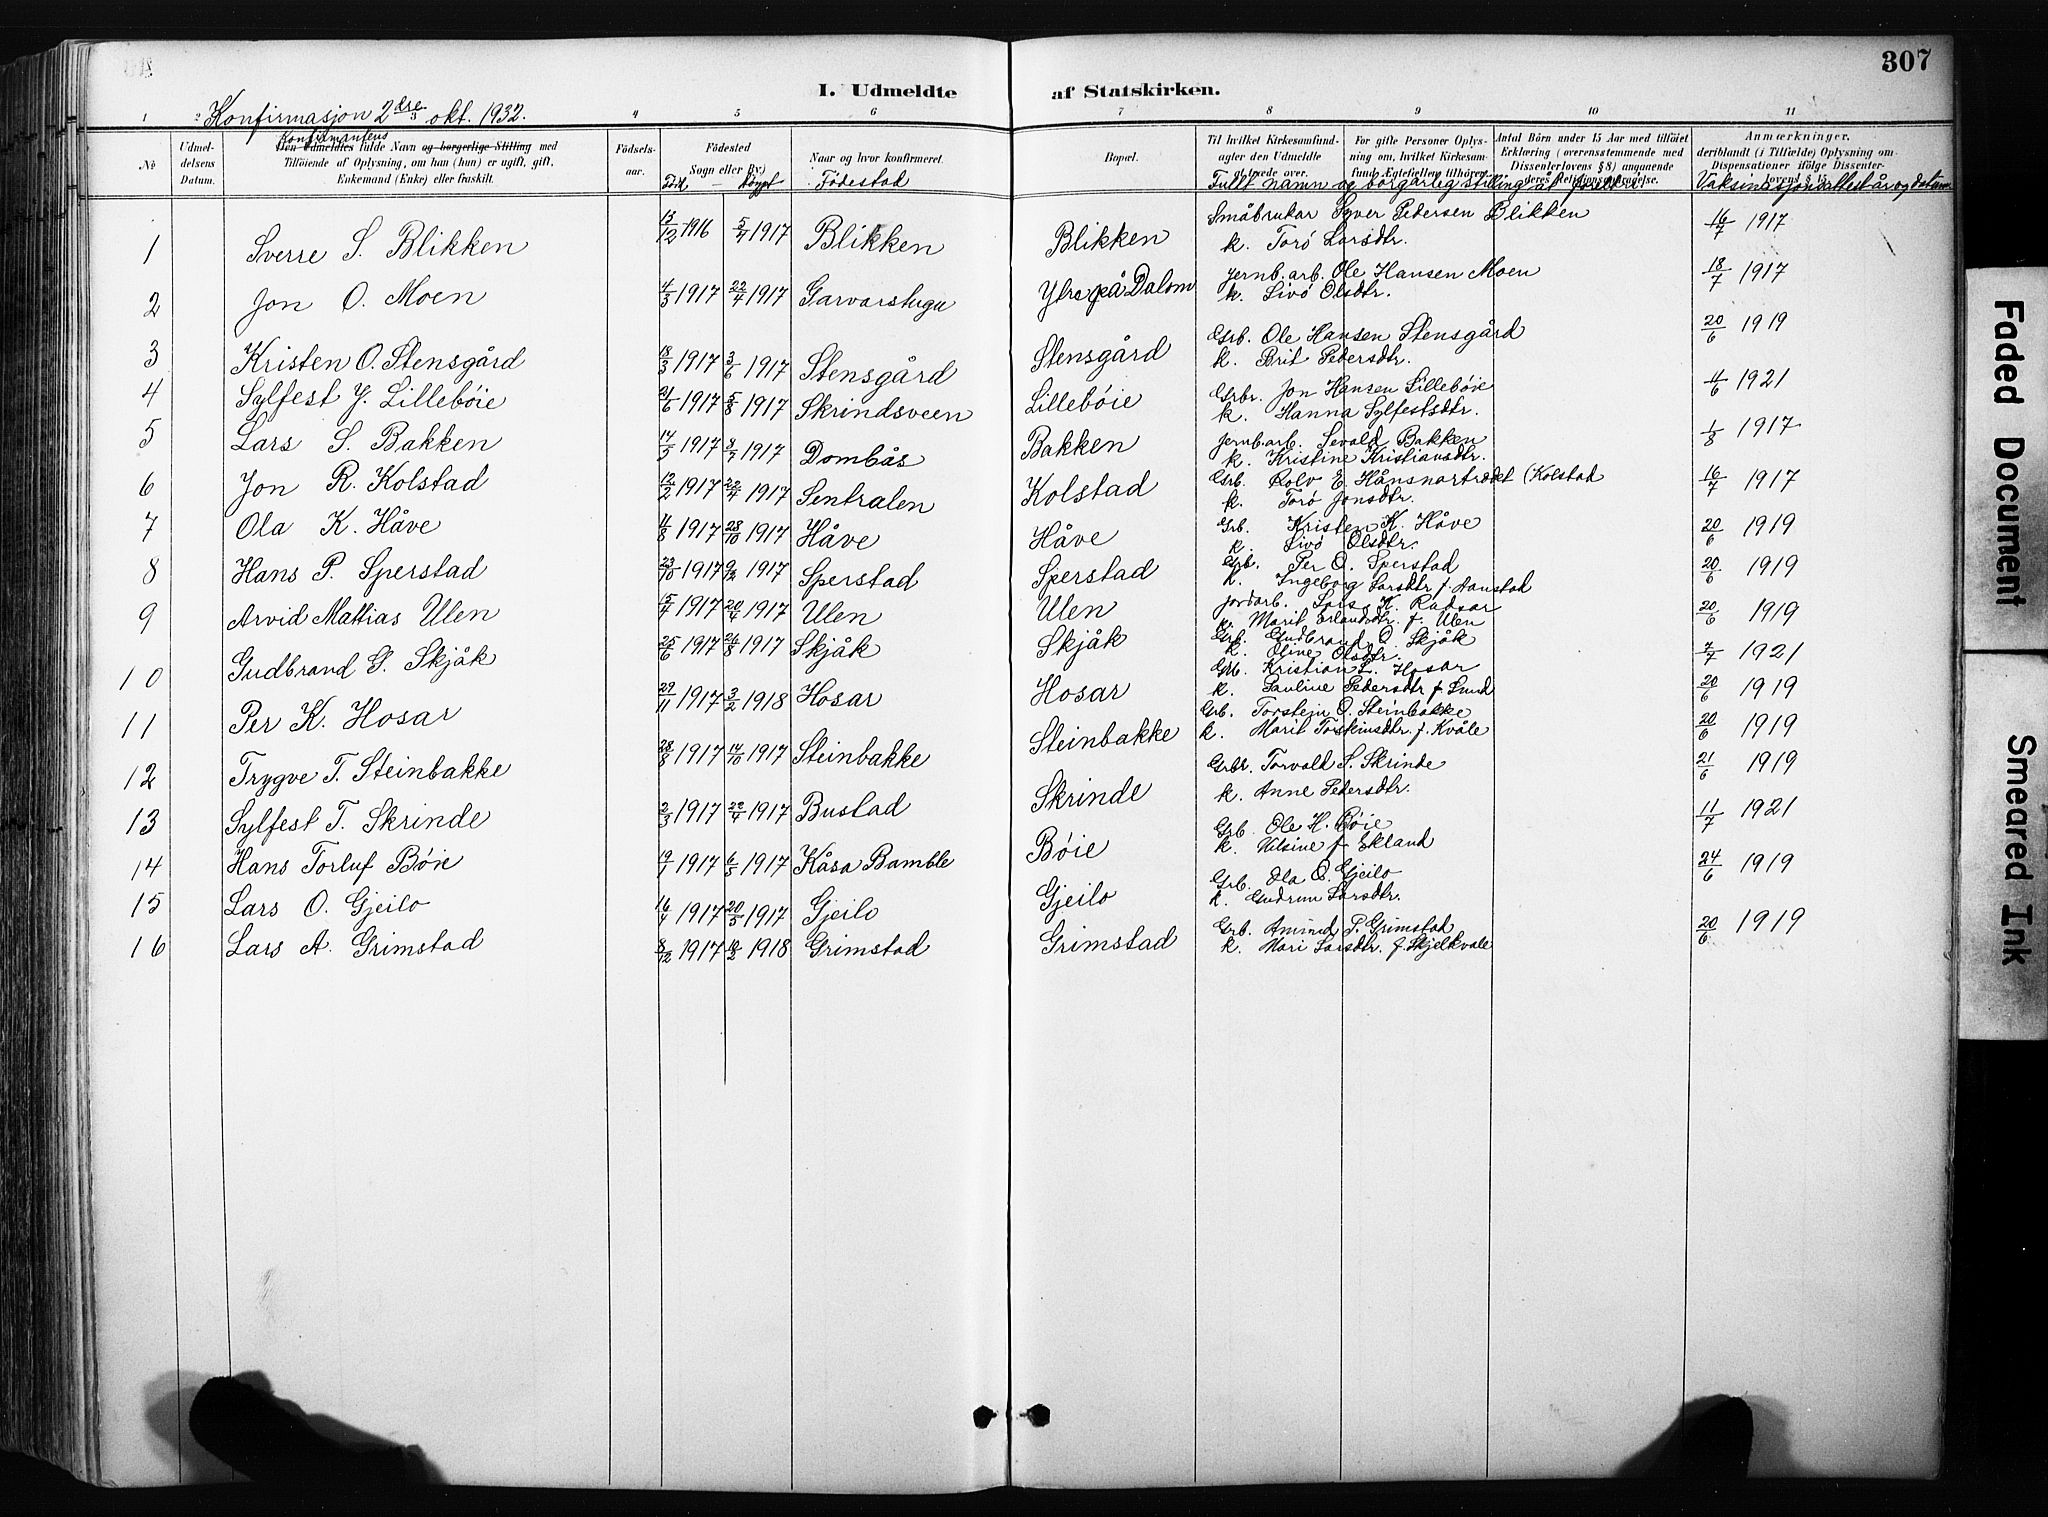 307
I. Udmeldte af Statskirken.
Konfirmasjon 2dre okt. 1932.
1 2 3 4 5 6 7 8 9 10 11
No
Udmel-
delsens
Datum.
Konfirmantens
Den Udmeldtes fulde Navn og borgerlige Stilling med
Tilföiende af Oplysning, om han (hun) er ugift, gift,
Enkemand (Enke) eller fraskilt.
Födsels-
aar.
Födested
Sogn eller By.
Född — döypt
Naar og hvor konfirmeret.
Födestad
Bopæl.
Til hvilket Kirkesamfund-
agter den Udmeldte
at træde over.
For gifte Personer Oplys-
ning om, hvilket Kirkesam-
fund Egtefællen tilhörer.
Antal Börn under 15 Aar med tilföiet
Erklæring (overensstemmende med
Dissenterlovens § 8) angaaende
deres Religionsopdragelse.
Fullt namn og borgarleg stilling åt foreldre
Anmærkninger.
deriblandt (i Tilfælde) Oplysning om
Dispensationer ifölge Dissenter-
lovens § 15.
Vaksinasjonsattest år og datum
1 Sverre S. Blikken 13/12 1916 5/4 1917 Blikken Blikken Småbrukar Syver Pedersen Blikken 16/7 1917
k. Torö Larsdtr.
2 Jon O. Moen 4/3 1917 22/4 1917 Garvarstugu Ytre på Dalom Jernb.arb. Ole Hansen Moen 18/7 1917
k. Sivö Olsdtr.
3 Kristen O. Stensgård 18/3 1917 3/6 1917 Stensgård Stensgård Grb. Ole Hansen Stensgård 20/6 1919
k. Brit Pedersdtr.
4 Sylfest J. Lillebøie 21/6 1917 5/8 1917 Skrindsveen Lillebøie Grbr. Jon Hansen Lillebøie 4/6 1921
k. Hanna Sylfestsdtr.
5 Lars S. Bakken 14/5 1917 8/7 1917 Dombås Bakken Jernb.arb. Sevald Bakken 1/8 1917
k. Kristine Kristiansdtr.
6 Jon R. Kolstad 12/2 1917 22/4 1917 Sentralen Kolstad Grb. Rolv E. Hånsnartrædet (Kolstad 16/7 1917
k. Torö Jonsdtr.
7 Ola K. Håve 4/8 1917 28/10 1917 Håve Håve Grb. Kristen K. Håve 20/6 1919
k. Sivö Olsdtr.
8 Hans P. Sperstad 23/10 1917 9/12 1917 Sperstad Sperstad Grb. Per O. Sperstad 20/6 1919
k. Ingeborg Larsdtr f. Aanstad
9 Arvid Mattias Ulen 15/4 1917 20/4 1917 Ulen Ulen Jordarb. Lars K. Rudsar 20/6 1919
k. Marit Erlandsdtr. f. Ulen
10 Gudbrand G. Skjåk 25/6 1917 26/8 1917 Skjåk Skjåk Grb. Gudbrand O. Skjåk 7/7 1921
k. Oline Olsdtr.
11 Per K. Hosar 29/11 1917 3/2 1918 Hosar Hosar Grb. Kristian L. Hosar 20/6 1919
k. Pauline Pedersdtr f. Lund
12 Trygve T. Steinbakke 28/8 1917 14/10 1917 Steinbakke Steinbakke Grb. Torstejn O. Steinbakke 20/6 1919
k. Marit Torsteinsdtr. f. Kvåle
13 Sylfest T. Skrinde 2/3 1917 22/4 1917 Bustad Skrinde Grbr. Torvald S. Skrinde 21/6 1919
k. Anne Pedersdtr.
14 Hans Torluf Bøie 19/7 1917 6/8 1917 Kåsa Bamble Bøie Grb. Ole H. Bøie 11/7 1921
k. Nilsine f Ekland
15 Lars O. Gjeilo 16/4 1917 20/5 1917 Gjeilo Gjeilo Grb. Ola O. Gjeilo 24/6 1919
k. Gudrun Larsdtr.
16 Lars A. Grimstad 8/12 1917 10/2 1918 Grimstad Grimstad Grb. Amund P. Grimstad 20/6 1919
k. Mari Larsdtr. f. Skjelkvale
Faded Document
Smeared Ink